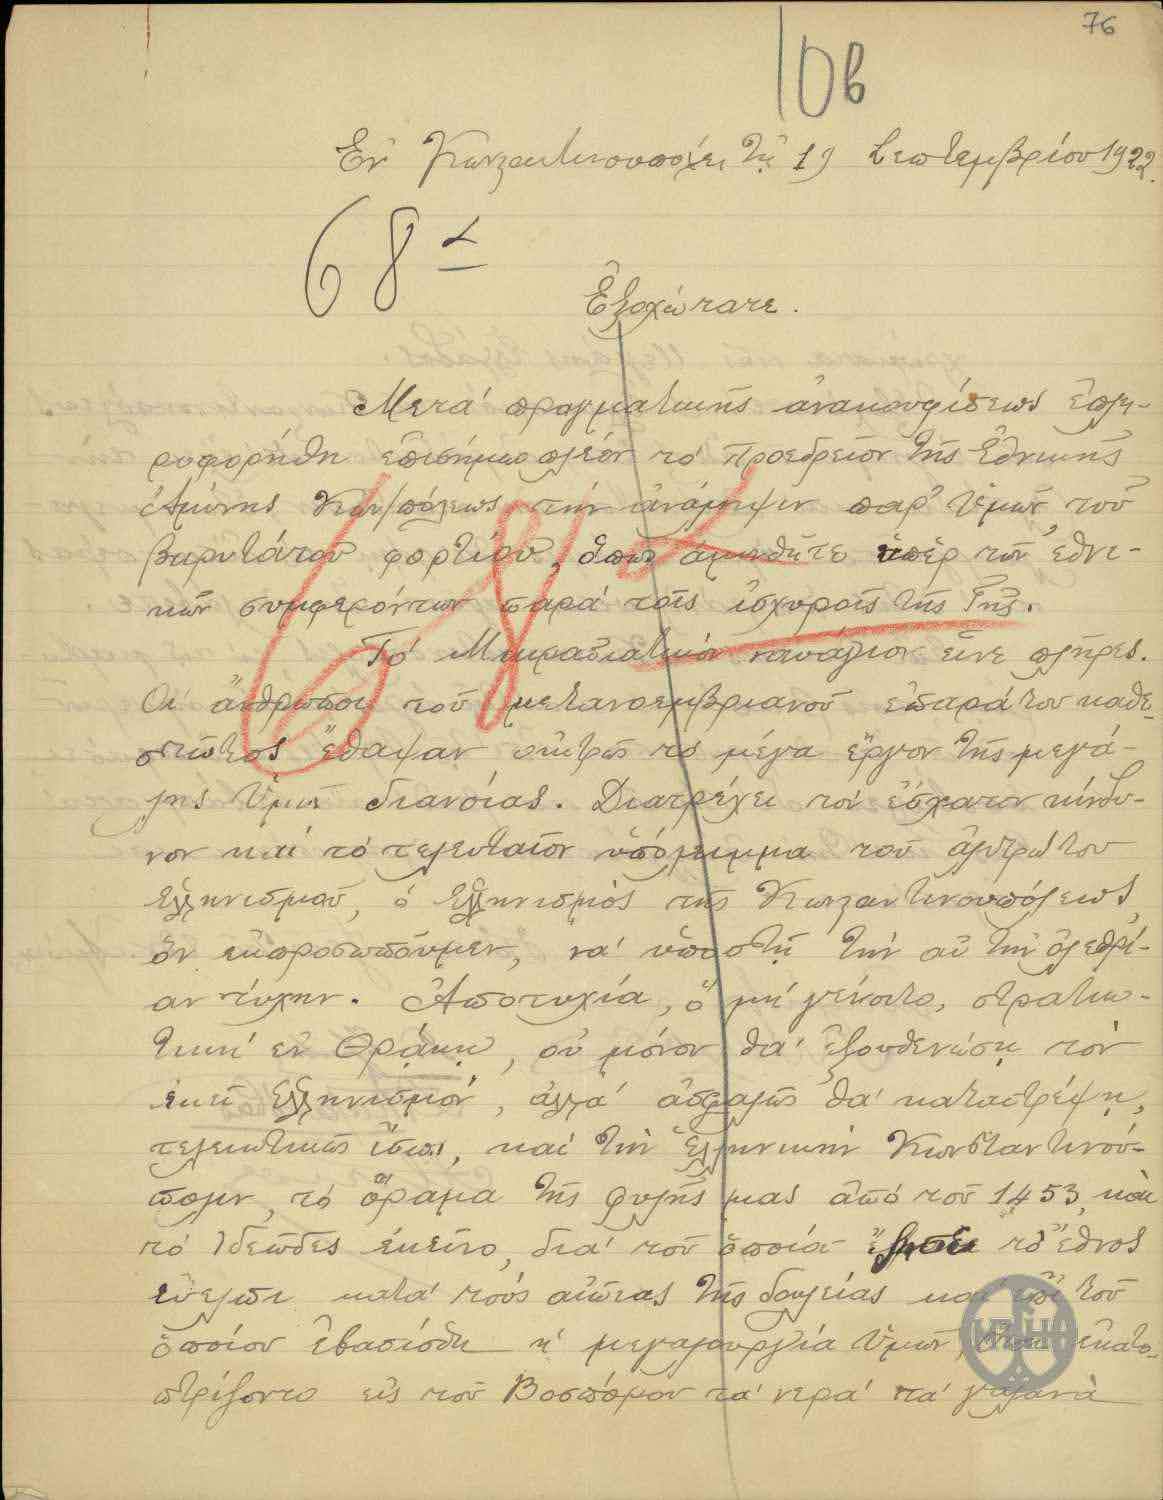 76
10β
Ἐν Κωνσταντινουπόλει τῇ 19 Σεπτεμβρίου 1922.
68α
Ἐξοχώτατε.
Μετά πραγματικῆς ἀνακουφίσεως ἐπλη-
ροφορήθη ἐπισήμως πλέον τό Προεδρεῖον τῆς Ἐθνικῆς
Ἀμύνης Κων/πόλεως τήν ἀνάληψιν παρ' Ὑμῶν τοῦ
βαρυτάτου φορτίου, ὅπως ἀμυνθῆτε ὑπέρ τῶν ἐθνι-
κῶν συμφερόντων παρά τοῖς ἰσχυροῖς τῆς Γῆς.
68α
Τό Μικρασιατικόν ναυάγιον εἶνε πλῆρες.
Οἱ ἄνθρωποι τοῦ μετανοεμβριανοῦ ἐπαράτου καθε-
στῶτος ἔθαψαν οἰκτρῶς τό μέγα ἔργον τῆς μεγά-
λης Ὑμῶν διανοίας. Διατρέχει τόν ἔσχατον κίνδυ-
νον καί τό τελευταῖον ὑπόλειμμα τοῦ ἀλυτρώτου
Ἑλληνισμοῦ, ὁ Ἑλληνισμός τῆς Κωνσταντινουπόλεως,
ὅν ἐκπροσωποῦμεν, νά ὑποστῇ τήν αὐτήν ὀλεθρί-
αν τύχην. Ἀποτυχία, ὅ μή γένοιτο, στρατιω-
τική ἐν Θράκῃ, οὐ μόνον θά ἐξουθενώσῃ τόν
ἐκεῖ Ἑλληνισμόν, ἀλλά ἀσφαλῶς θά καταστρέψῃ,
τελειωτικῶς ἴσως, καί τήν Ἑλληνικήν Κωνσταντινού-
πολιν, τό ὅραμα τῆς φυλῆς μας ἀπό τοῦ 1453, καί
τό Ἰδεῶδες ἐκεῖνο, διά τοῦ ὁποίου ἔζησε τό ἔθνος
εὔελπι κατά τούς αἰῶνας τῆς δουλείας καί ἐπί τοῦ
ὁποίου ἐβασίσθη ἡ μεγαλουργία Ὑμῶν, ὅπου ἐκατο-
πτρίζοντο εἰς τοῦ Βοσπόρου τά νερά τά γαλανά